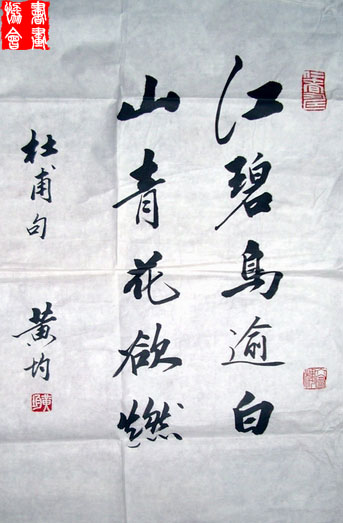 江碧鳥逾白
山青花欲燃
杜甫句
黄均
書畫協會